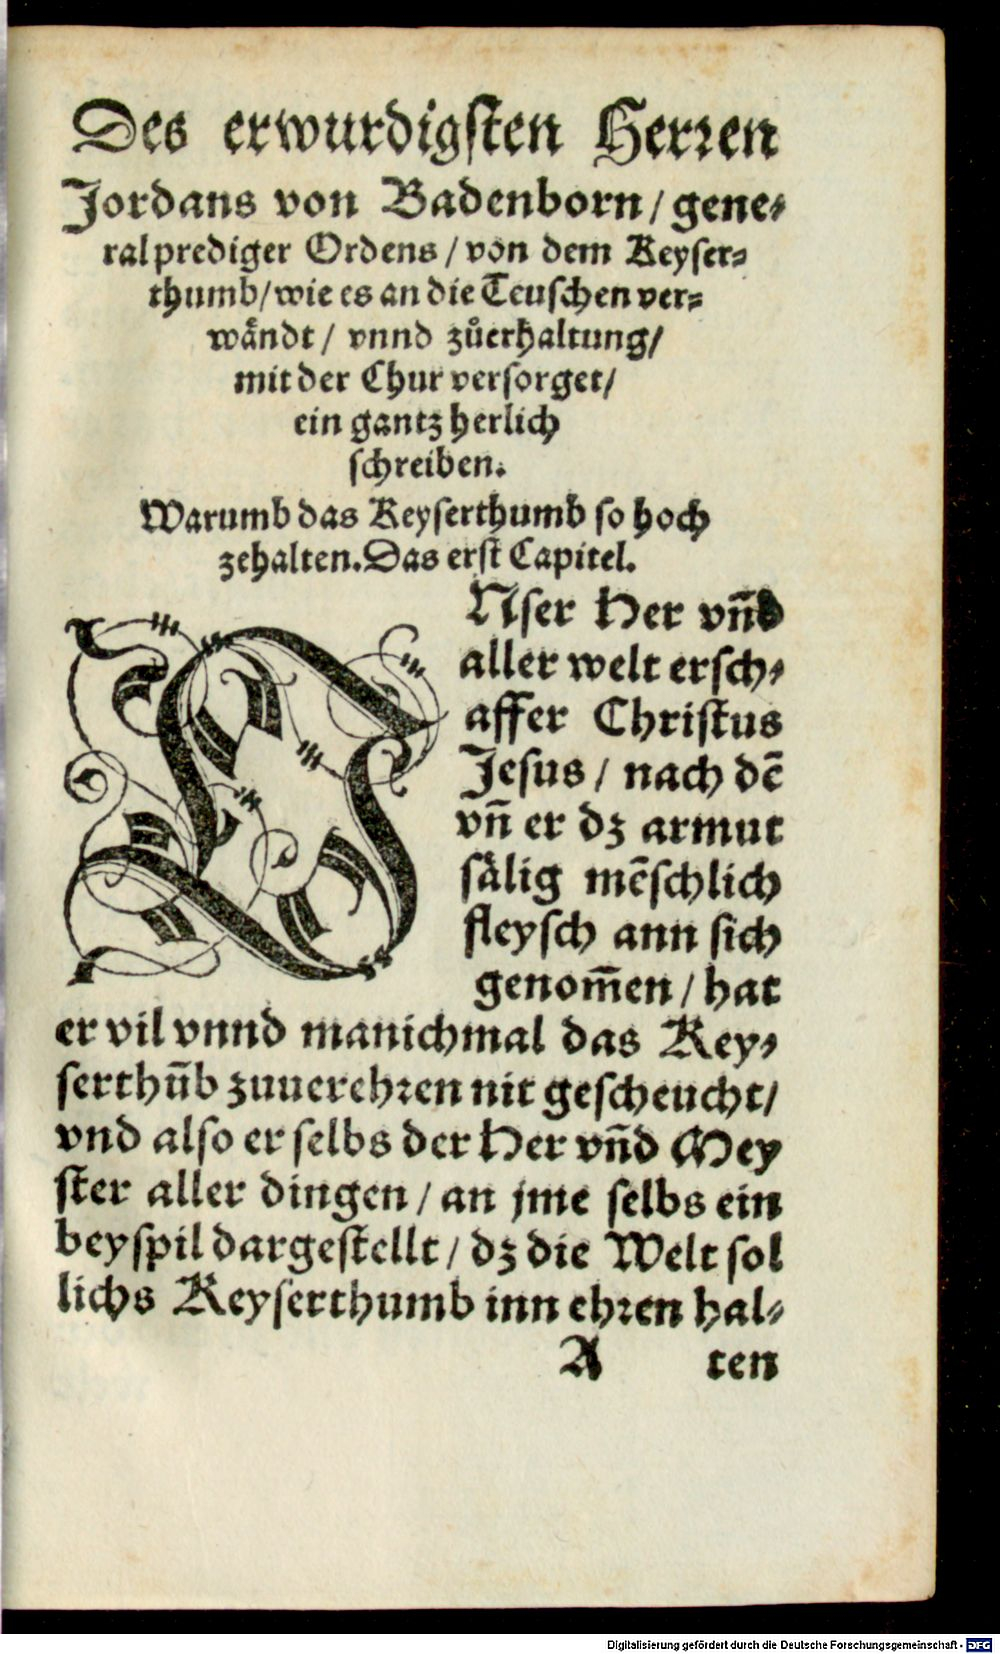 Des erwurdigsten Herren
Jordans von Badenborn / gene⸗
ral prediger Ordens / von dem Keyser⸗
thumb / wie es an die Teuschen ver⸗
wändt / vnnd zůerhaltung /
mit der Chur versorget /
ein gantz herlich
schreiben.
Warumb das Keyserthumb so hoch
zehalten. Das erst Capitel.
VNser Her vn̄d
aller welt ersch⸗
affer Christus
Jesus / nach dē
vn̄ er dz armut
sälig mēschlich
fleysch ann sich
genom̄en / hat
er vil vnnd manichmal das Key⸗
serthūb zuuerehren nit gescheucht /
vnd also er selbs der Her vn̄d Mey
ster aller dingen / an jme selbs ein
beyspil dargestellt / dz die Welt sol
lichs Keyserthumb inn ehren hal⸗
A ten
Digitalisierung gefördert durch die Deutsche Forschungsgemeinschaft - DFG